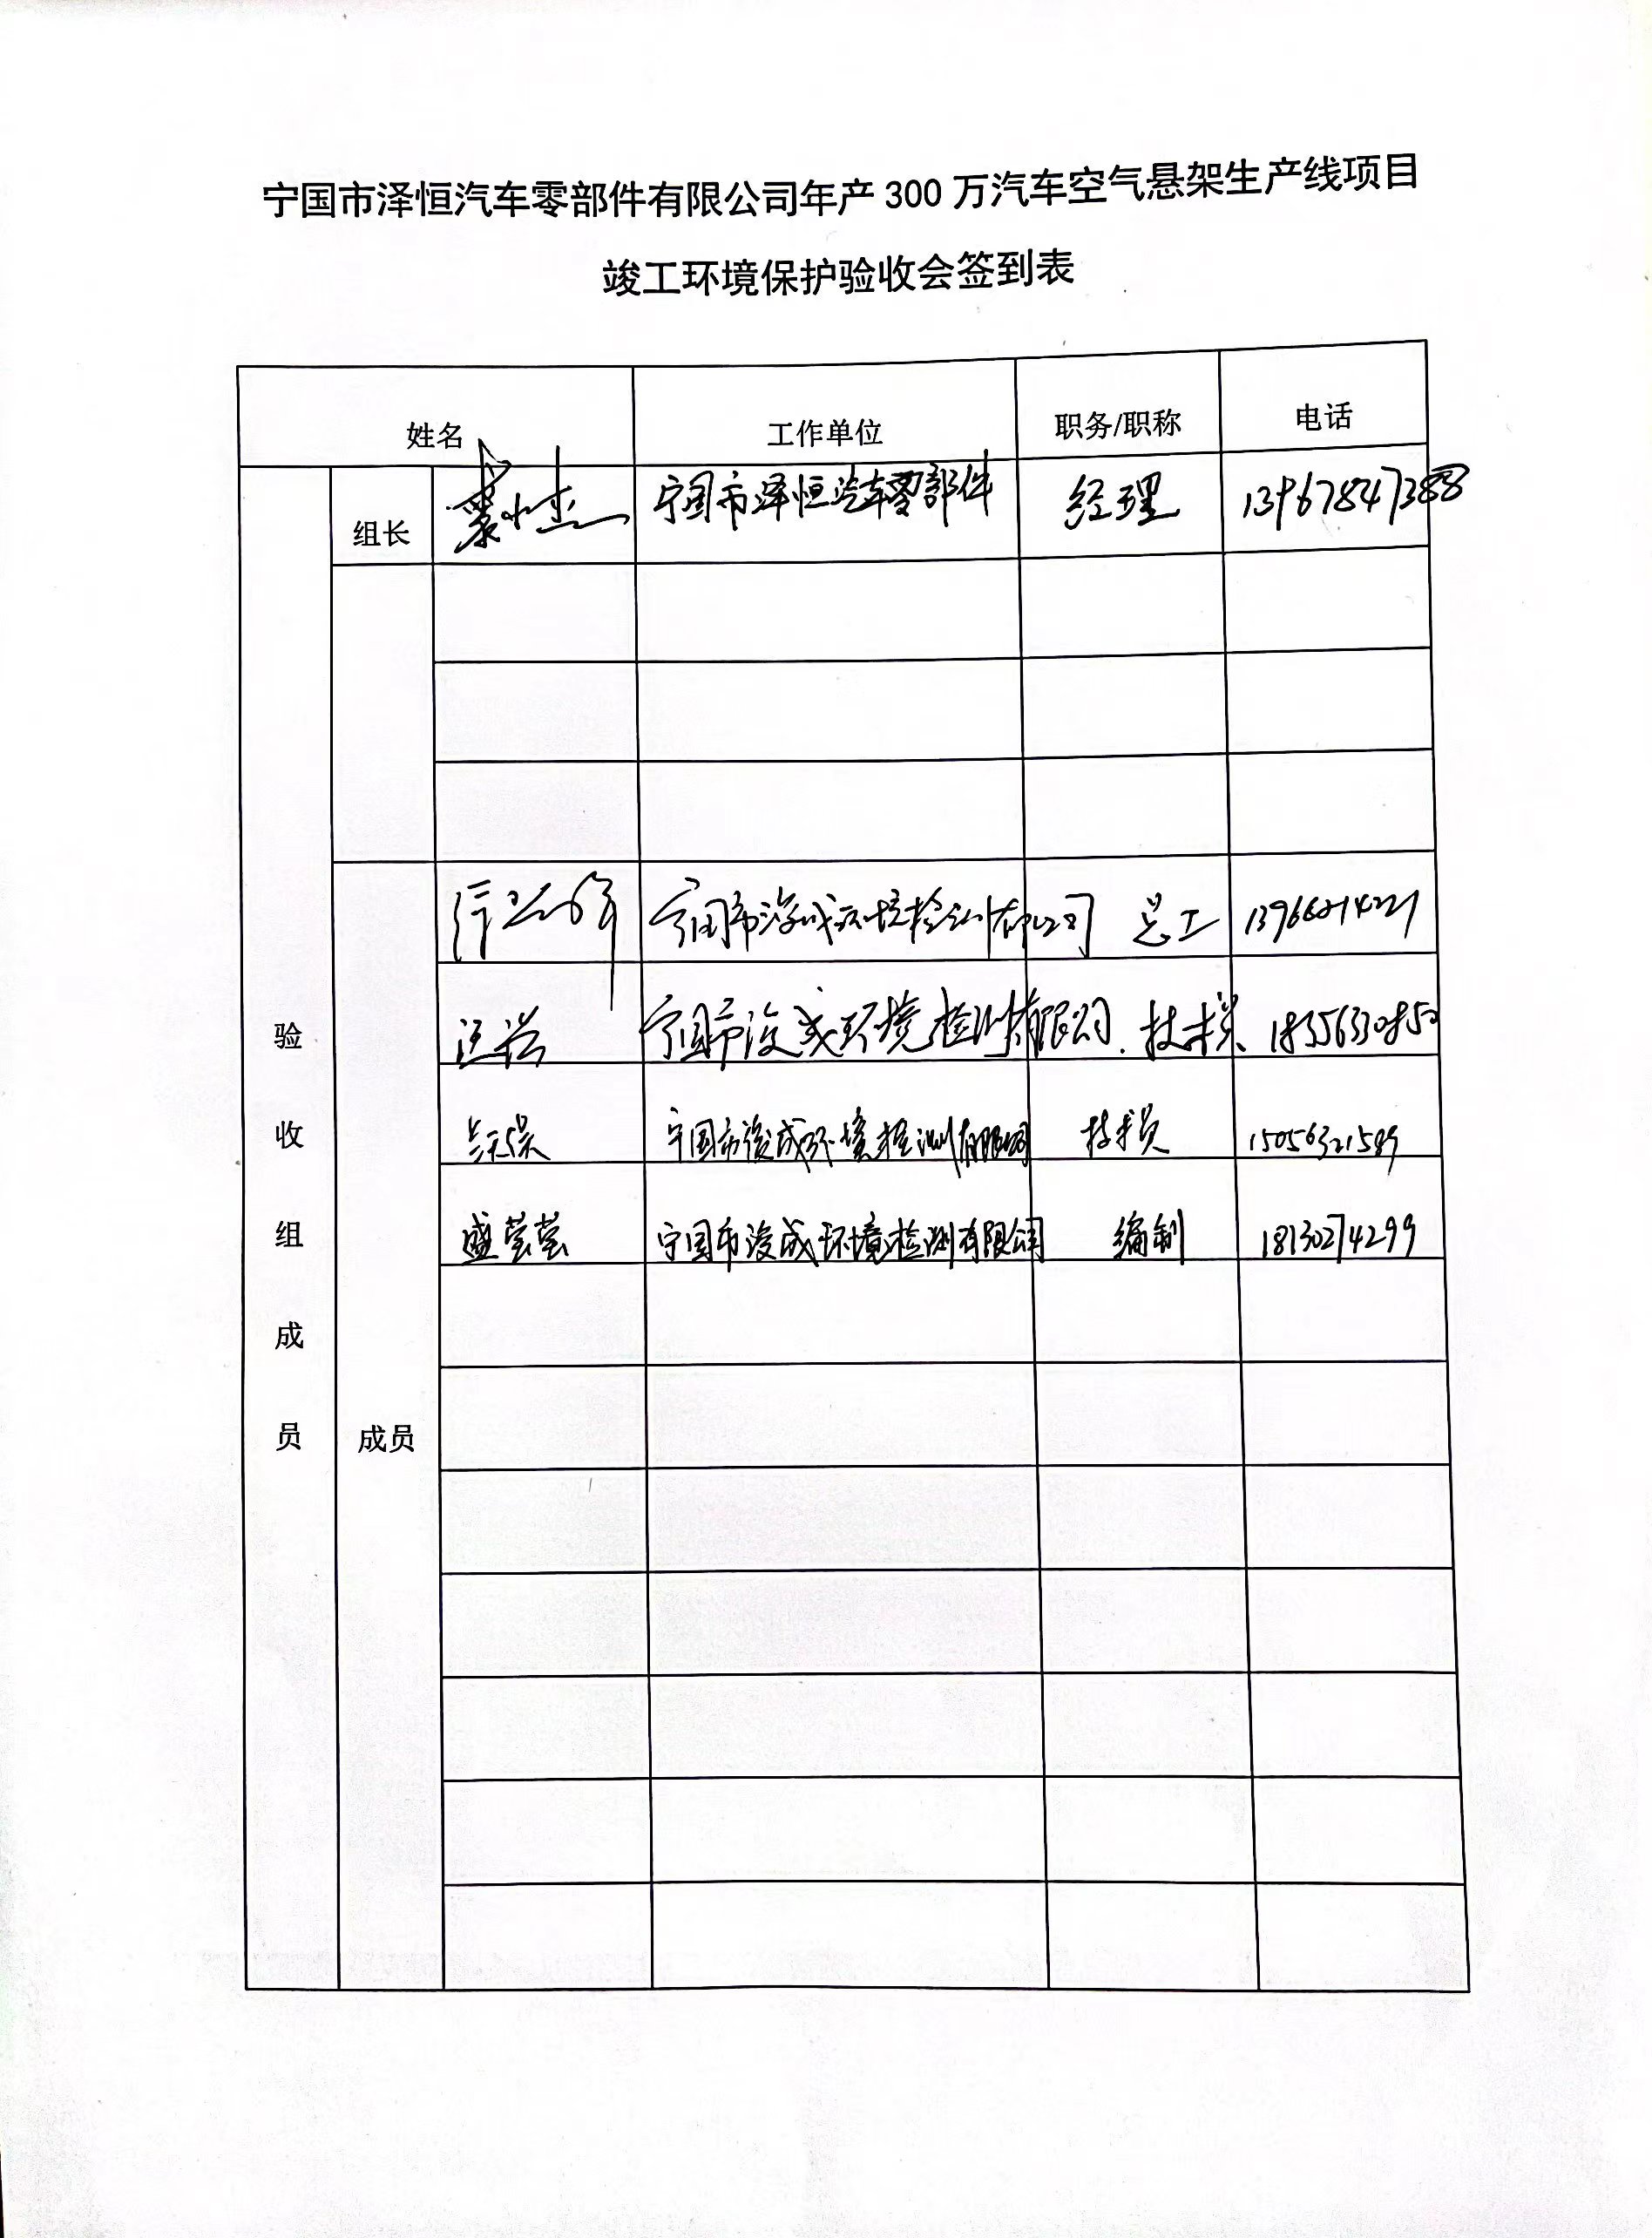 宁国市泽恒汽车零部件有限公司年产 300 万汽车空气悬架生产线项目
竣工环境保护验收会签到表
姓名 工作单位 职务/职称 电话
组长 宁国市泽恒汽车零部件 经理
宁国市浚成环境检测有限公司 总工
汪 宁国市浚成环境检测有限公司 技术员 18356330850
宁国市浚成环境检测有限公司 技术员 15056321589
盛莹莹 宁国市浚成环境检测有限公司 编制 18130274299
验收组成员
成员